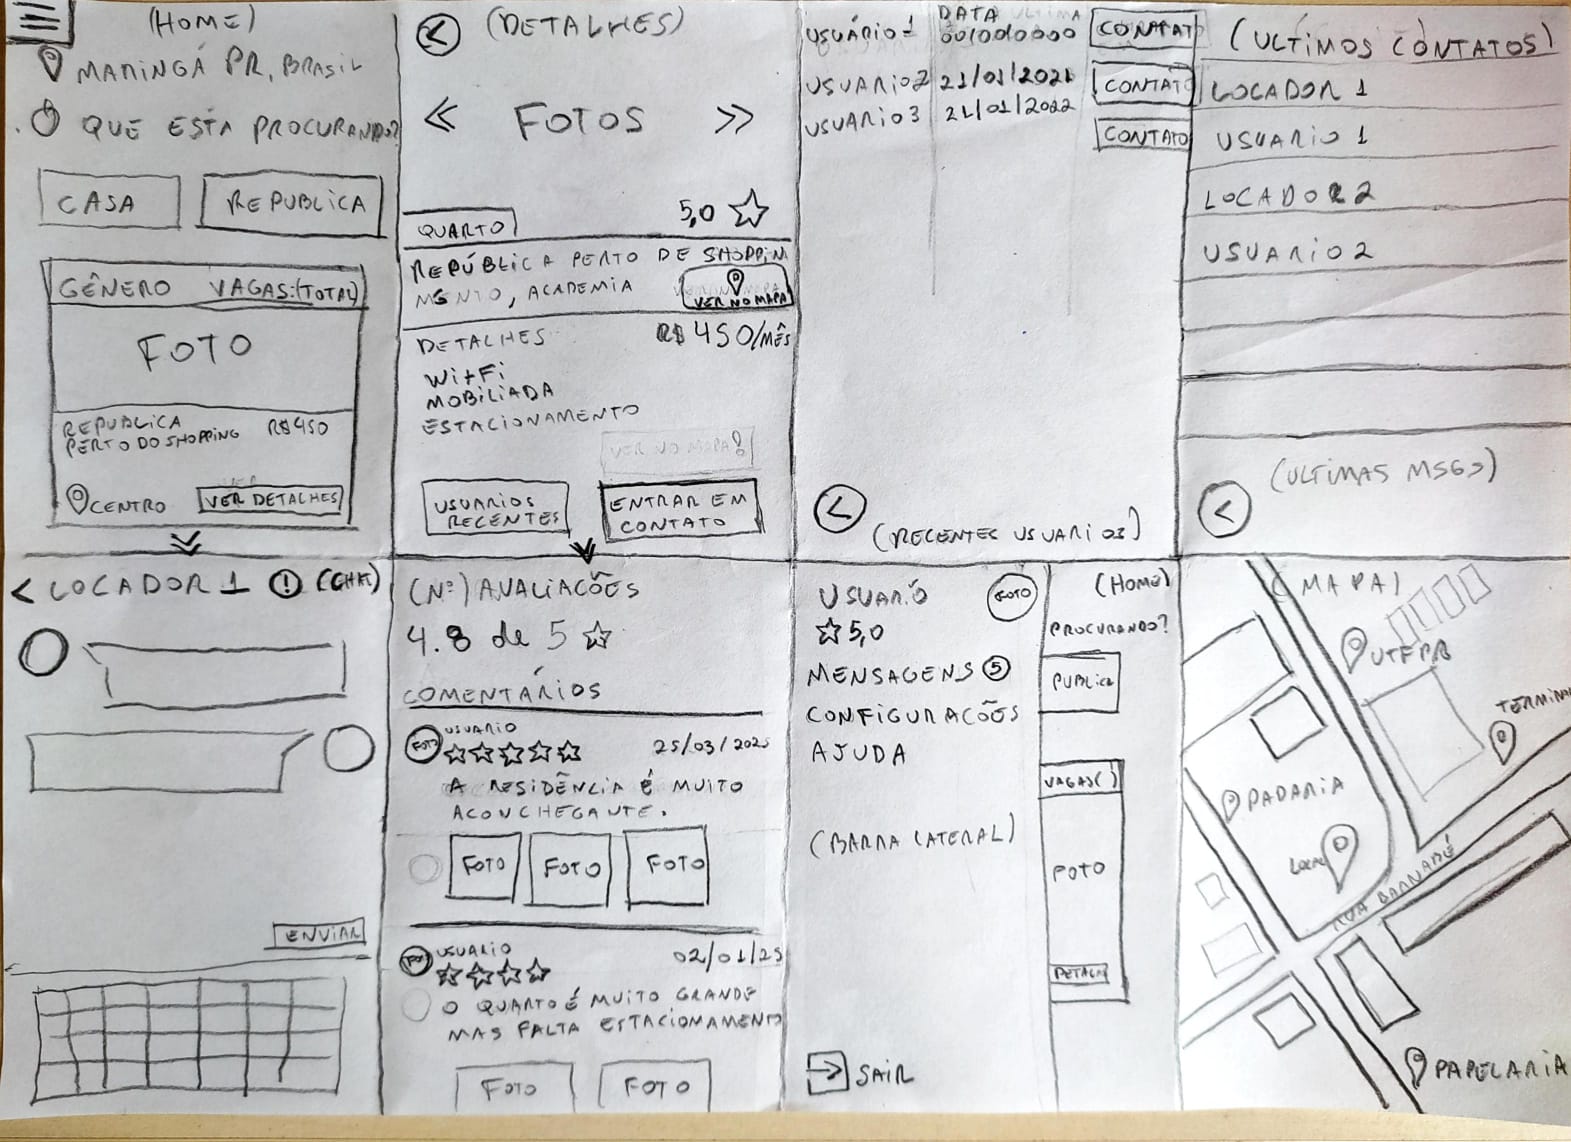 (HOME)
MARINGÁ PR, BRASIL
QUE ESTA PROCURANDO?
CASA
REPUBLICA
GÊNERO VAGAS:(TOTAL)
FOTO
REPUBLICA
PERTO DO SHOPPING R$450
CENTRO VER DETALHES
(DETALHES)
<< FOTOS >>
QUARTO 5,0
REPÚBLICA PERTO DE SHOPPIN
MENTO, ACADEMIA
VER NO MAPA
DETALHES R$450/MÊS
Wi-Fi
MOBILIADA
ESTACIONAMENTO
VER NO MAPA
USUARIOS
RECENTES
ENTRAR EM
CONTATO
DATA ULTIMA
USUÁRIO 1 00/00/0000 CONTATO
USUARIO 2 21/01/2021 CONTATO
USUARIO 3 21/01/2022 CONTATO
(RECENTES USUARIOS)
(ULTIMOS CONTATOS)
LOCADOR 1
USUARIO 1
LOCADOR 2
USUARIO 2
(ULTIMAS MSGS)
< LOCADOR 1 ! (CHAT)
ENVIAR
(Nº) AVALIAÇÕES
4.8 de 5
COMENTÁRIOS
FOTO USUARIO
25/03/2025
A RESIDÊNCIA É MUITO
ACONCHEGANTE.
FOTO FOTO FOTO
USUARIO
02/01/25
O QUARTO É MUITO GRANDE
MAS FALTA ESTACIONAMENTO
FOTO FOTO
USUARIO FOTO
5,0
MENSAGENS 5
CONFIGURAÇÕES
AJUDA
(BARRA LATERAL)
SAIR
(HOME)
PROCURANDO?
PUBLICA
VAGAS( )
FOTO
DETALH
(MAPA)
UTFPR
TERMINAL
PADARIA
LOCAL
RUA BARNABÉ
PAPELARIA